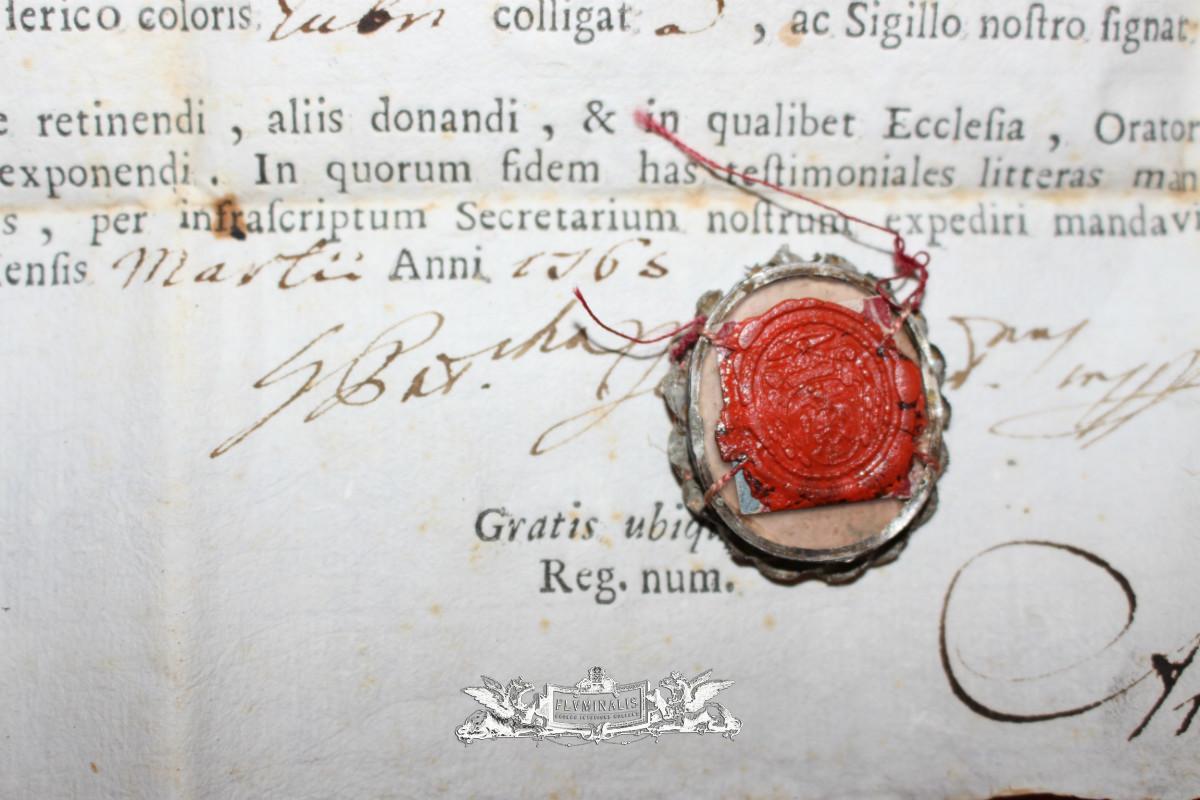 lerico coloris rubri colligat a, ac Sigillo noſtro ſignat
e retinendi, aliis donandi, & in qualibet Eccleſia, Orator
exponendi. In quorum fidem has teſtimoniales litteras man
s, per infraſcriptum Secretarium noſtrum expediri mandavi
enſis Martii Anni 1763
Gratis ubiq
Reg. num.
FLVMINALIS